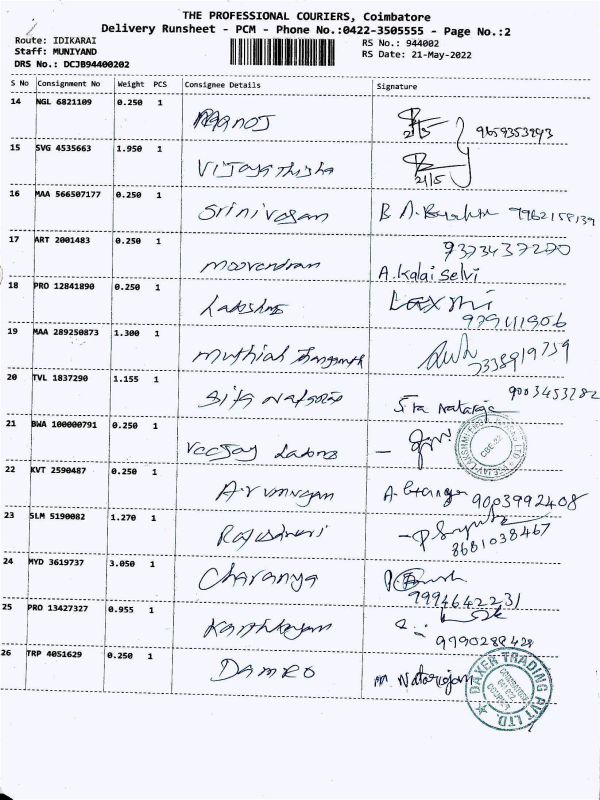 THE PROFESSIONAL COURIERS, Coimbatore
Delivery Runsheet - PCM - Phone No.:0422-3505555 - Page No.:2
Route: IDIKARAI
RS No.: 944002
Staff: MUNIYAND
RS Date: 21-May-2022
DRS No.: DCJB94400202
S No Consignment No Weight PCS Consignee Details Signature
14 NGL 6821109 0.250 1 Manoj 21/5 9659353293
15 SVG 4535663 1.950 1 21/5
16 MAA 566507177 0.250 1 Srinivasan 9962158139
17 ART 2001483 0.250 1 Moovendram 9373437270
A. Kalai Selvi
18 PRO 12841890 0.250 1 Lakshmi Laxmi
979411906
19 MAA 289250873 1.300 1 Muthiah 7338919759
20 TVL 1837290 1.155 1 Sita Natarja 9003453282
21 BWA 100000791 0.250 1 Veejay
CBE.22
22 KVT 2590487 0.250 1 Arumugam 9003992408
23 SLM 5190082 1.270 1 Rajeshwari
8681038467
24 MYD 3619737 3.050 1 Charanya
9994642231
25 PRO 13427327 0.955 1 Karthikeyan
9790289428
26 TRP 4051629 0.250 1 DAMRO M. Natarajan
DAXER TRADING PVT LTD.